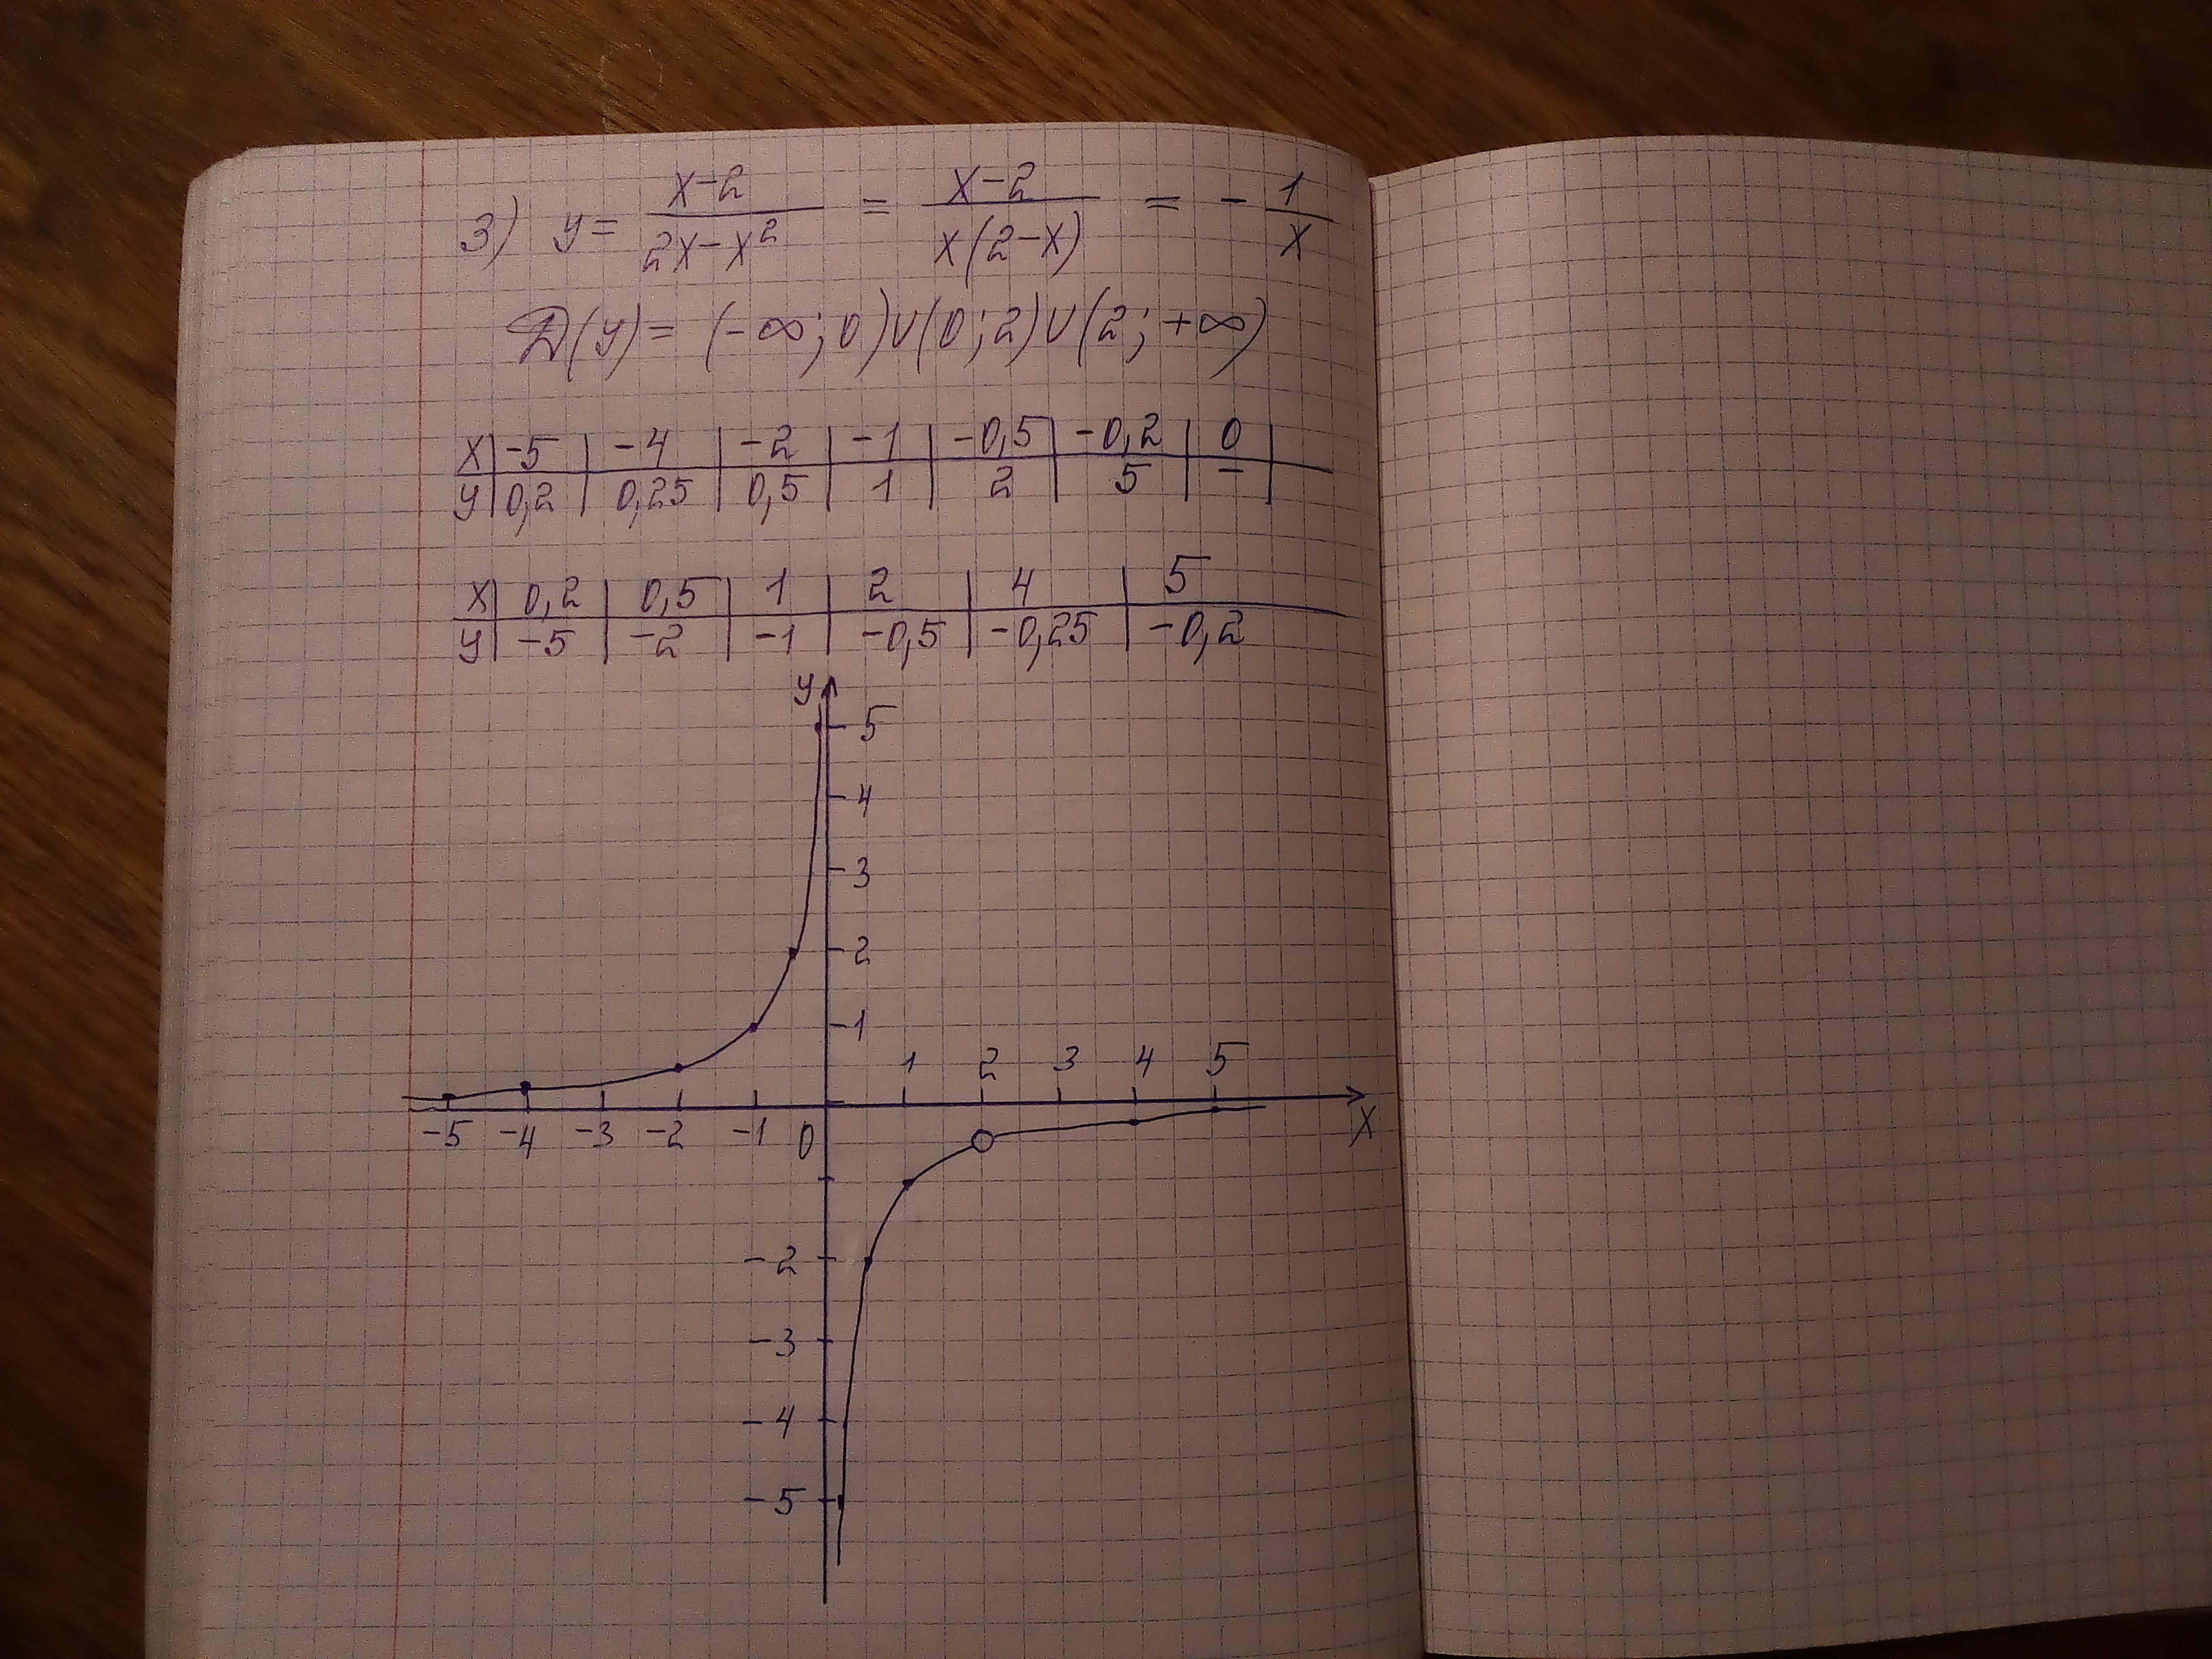 3) y = x-2 / 2x-x² = x-2 / x(2-x) = - 1 / x
D(y) = (-∞; 0)∪(0; 2)∪(2; +∞)
x | -5 | -4 | -2 | -1 | -0,5 | -0,2 | 0 |
y | 0,2 | 0,25 | 0,5 | 1 | 2 | 5 | – |
x | 0,2 | 0,5 | 1 | 2 | 4 | 5
y | -5 | -2 | -1 | -0,5 | -0,25 | -0,2
y
5
4
3
2
1
1 2 3 4 5
-5 -4 -3 -2 -1 0 x
-2
-3
-4
-5